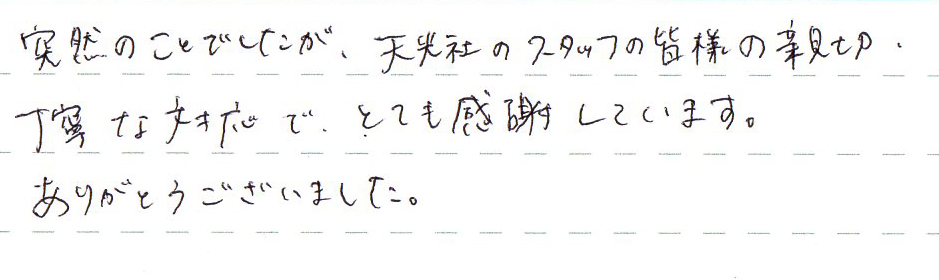 突然のことでしたが、天光社のスタッフの皆様の親切・
丁寧な対応で、とても感謝しています。
ありがとうございました。